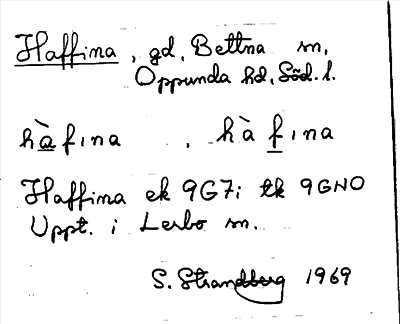 Haffina, gd, Bettna sn,
Oppunda hd, Söd. l.
hàfina . hàfina
Haffina ek 9G7i tk 9GNO
Uppt. i Lerbo sn.
S. Strandberg 1969